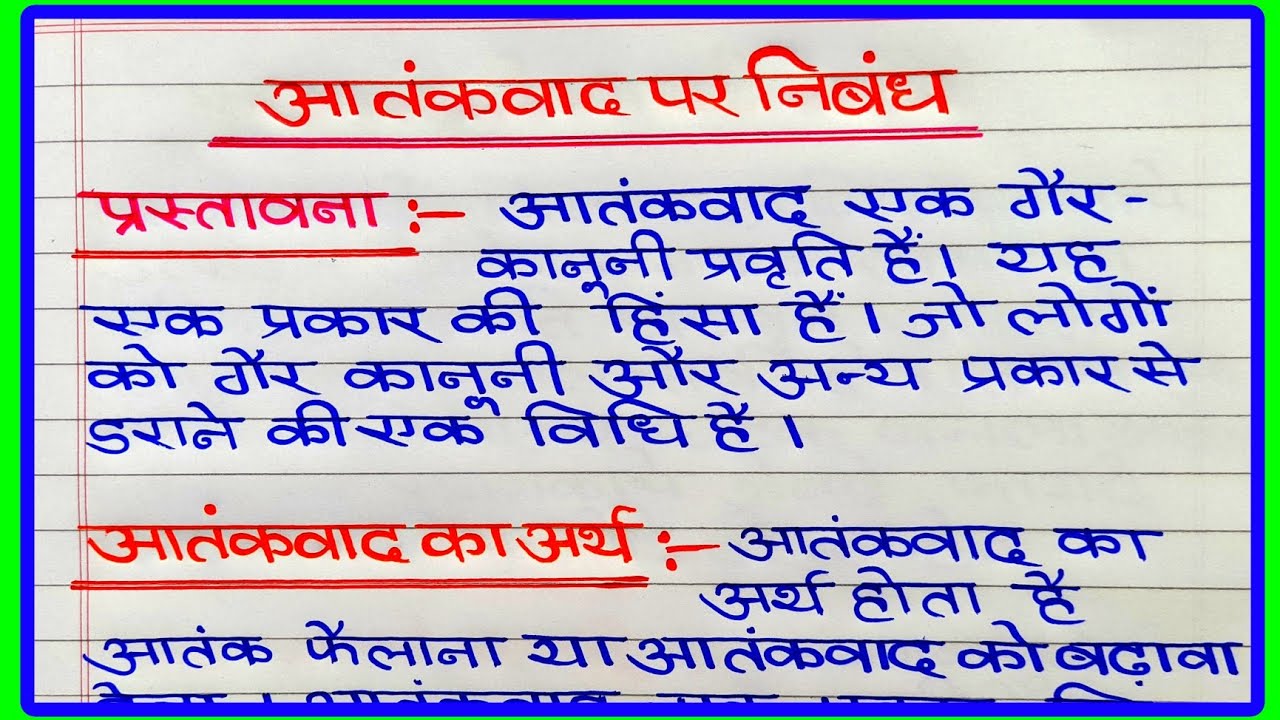 आतंकवाद पर निबंध
प्रस्तावना :- आतंकवाद एक गैर-
कानूनी प्रवृति हैं। यह
एक प्रकार की हिंसा हैं। जो लोगों
को गैर कानूनी और अन्य प्रकार से
डराने की एक विधि है।
आतंकवाद का अर्थ :- आतंकवाद का
अर्थ होता है
आतंक फैलाना या आतंकवाद को बढ़ावा